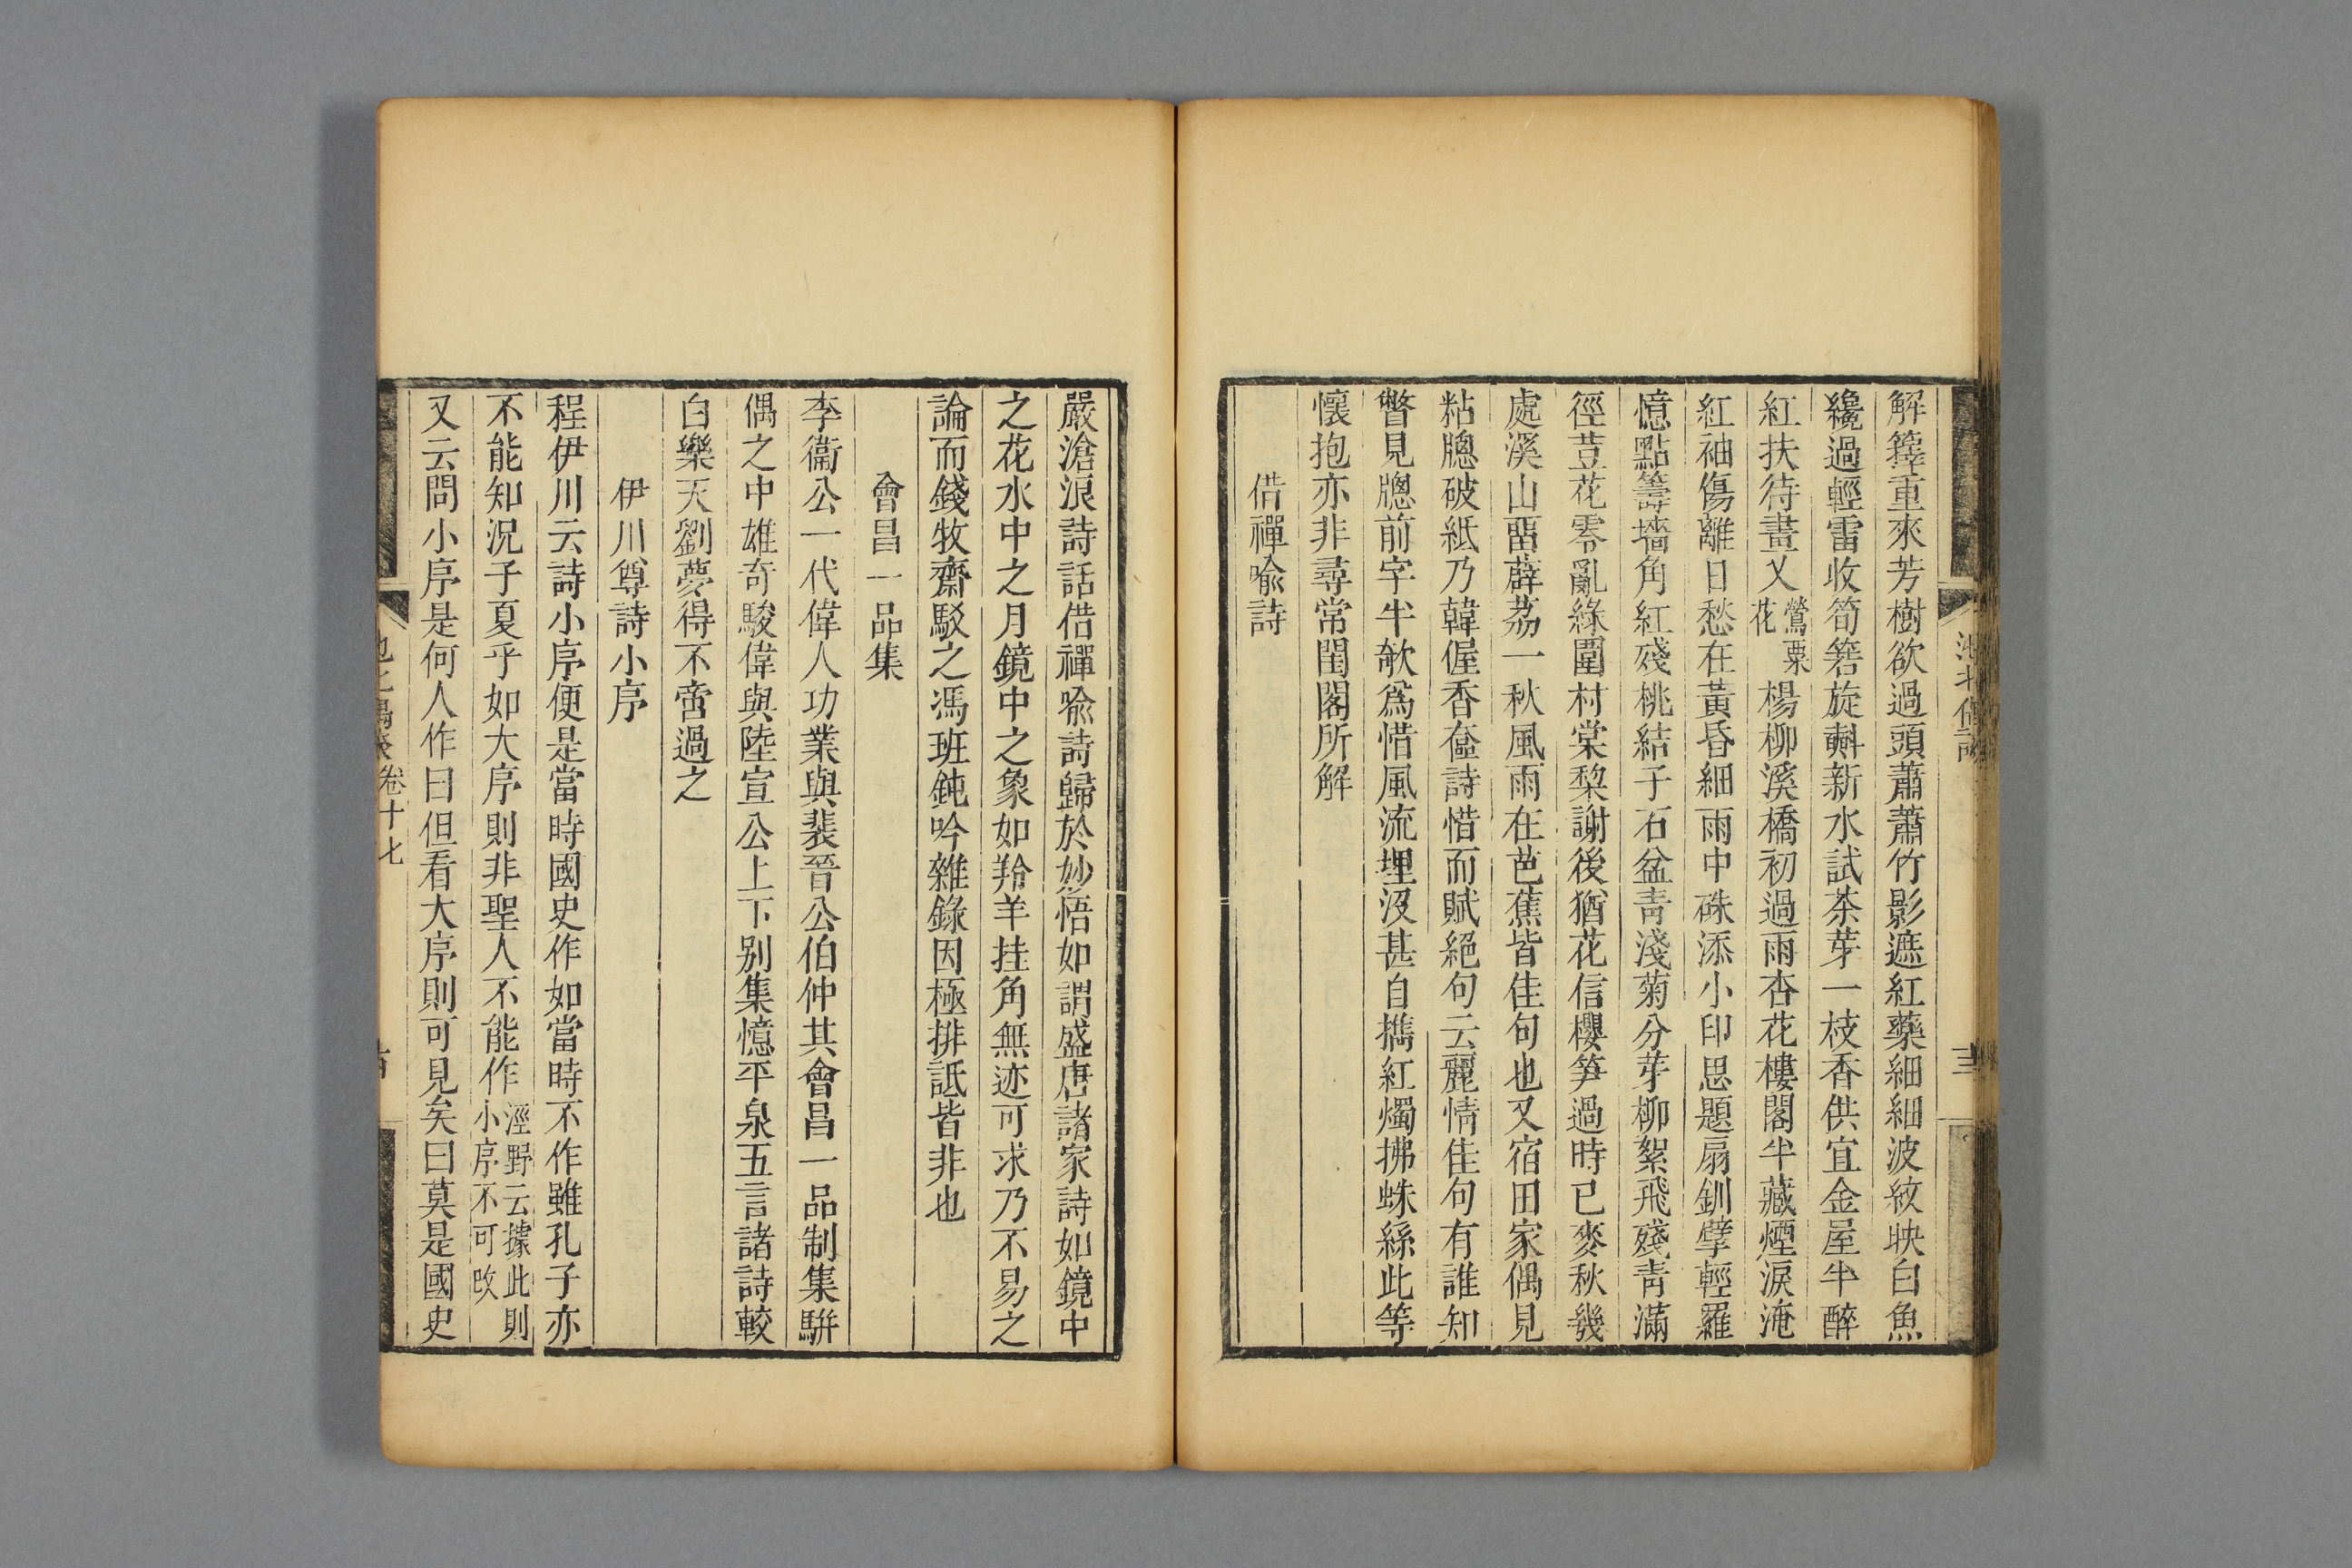 解籜重來芳樹欲過頭蕭蕭竹影遮紅藥細細波紋映白魚
纔過輕雷收筍簬旋㪺新水試茶芽一枝香供宜金屋半醉
紅扶待畫乂鶯粟花楊柳溪橋初過雨杏花樓閣半藏煙淚淹
紅袖傷離日愁在黃昏細雨中硃添小印思題扇釧擘輕羅
憶點籌墻角紅殘桃結子石盆靑淺菊分芽柳絮飛殘靑滿
徑荳花零亂綠圍村棠棃謝後猶花信櫻笋過時已麥秋幾
處溪山畱薜荔一秋風雨在芭蕉皆佳句也又宿田家偶見
粘牕破紙乃韓偓香奩詩惜而賦絕句云麗情佳句有誰知
瞥見牕前字半欹爲惜風流埋沒甚自攜紅燭拂蛛絲此等
懷抱亦非尋常閨閣所解
借禪喩詩
嚴滄浪詩話借禪喩詩歸於妙悟如謂盛唐諸家詩如鏡中
之花水中之月鏡中之象如羚羊挂角無迹可求乃不易之
論而錢牧齋駁之馮班鈍吟雜錄因極排詆皆非也
會昌一品集
李衞公一代偉人功業與裴晉公伯仲其會昌一品制集騈
偶之中雄奇駿偉與陸宣公上下别集憶平泉五言諸詩較
白樂天劉夢得不啻過之
伊川尊詩小序
程伊川云詩小序便是當時國史作如當時不作雖孔子亦
不能知況子夏乎如大序則非聖人不能作涇野云據此則小序不可攺
又云問小序是何人作曰但看大序則可見矣曰莫是國史
卷十七